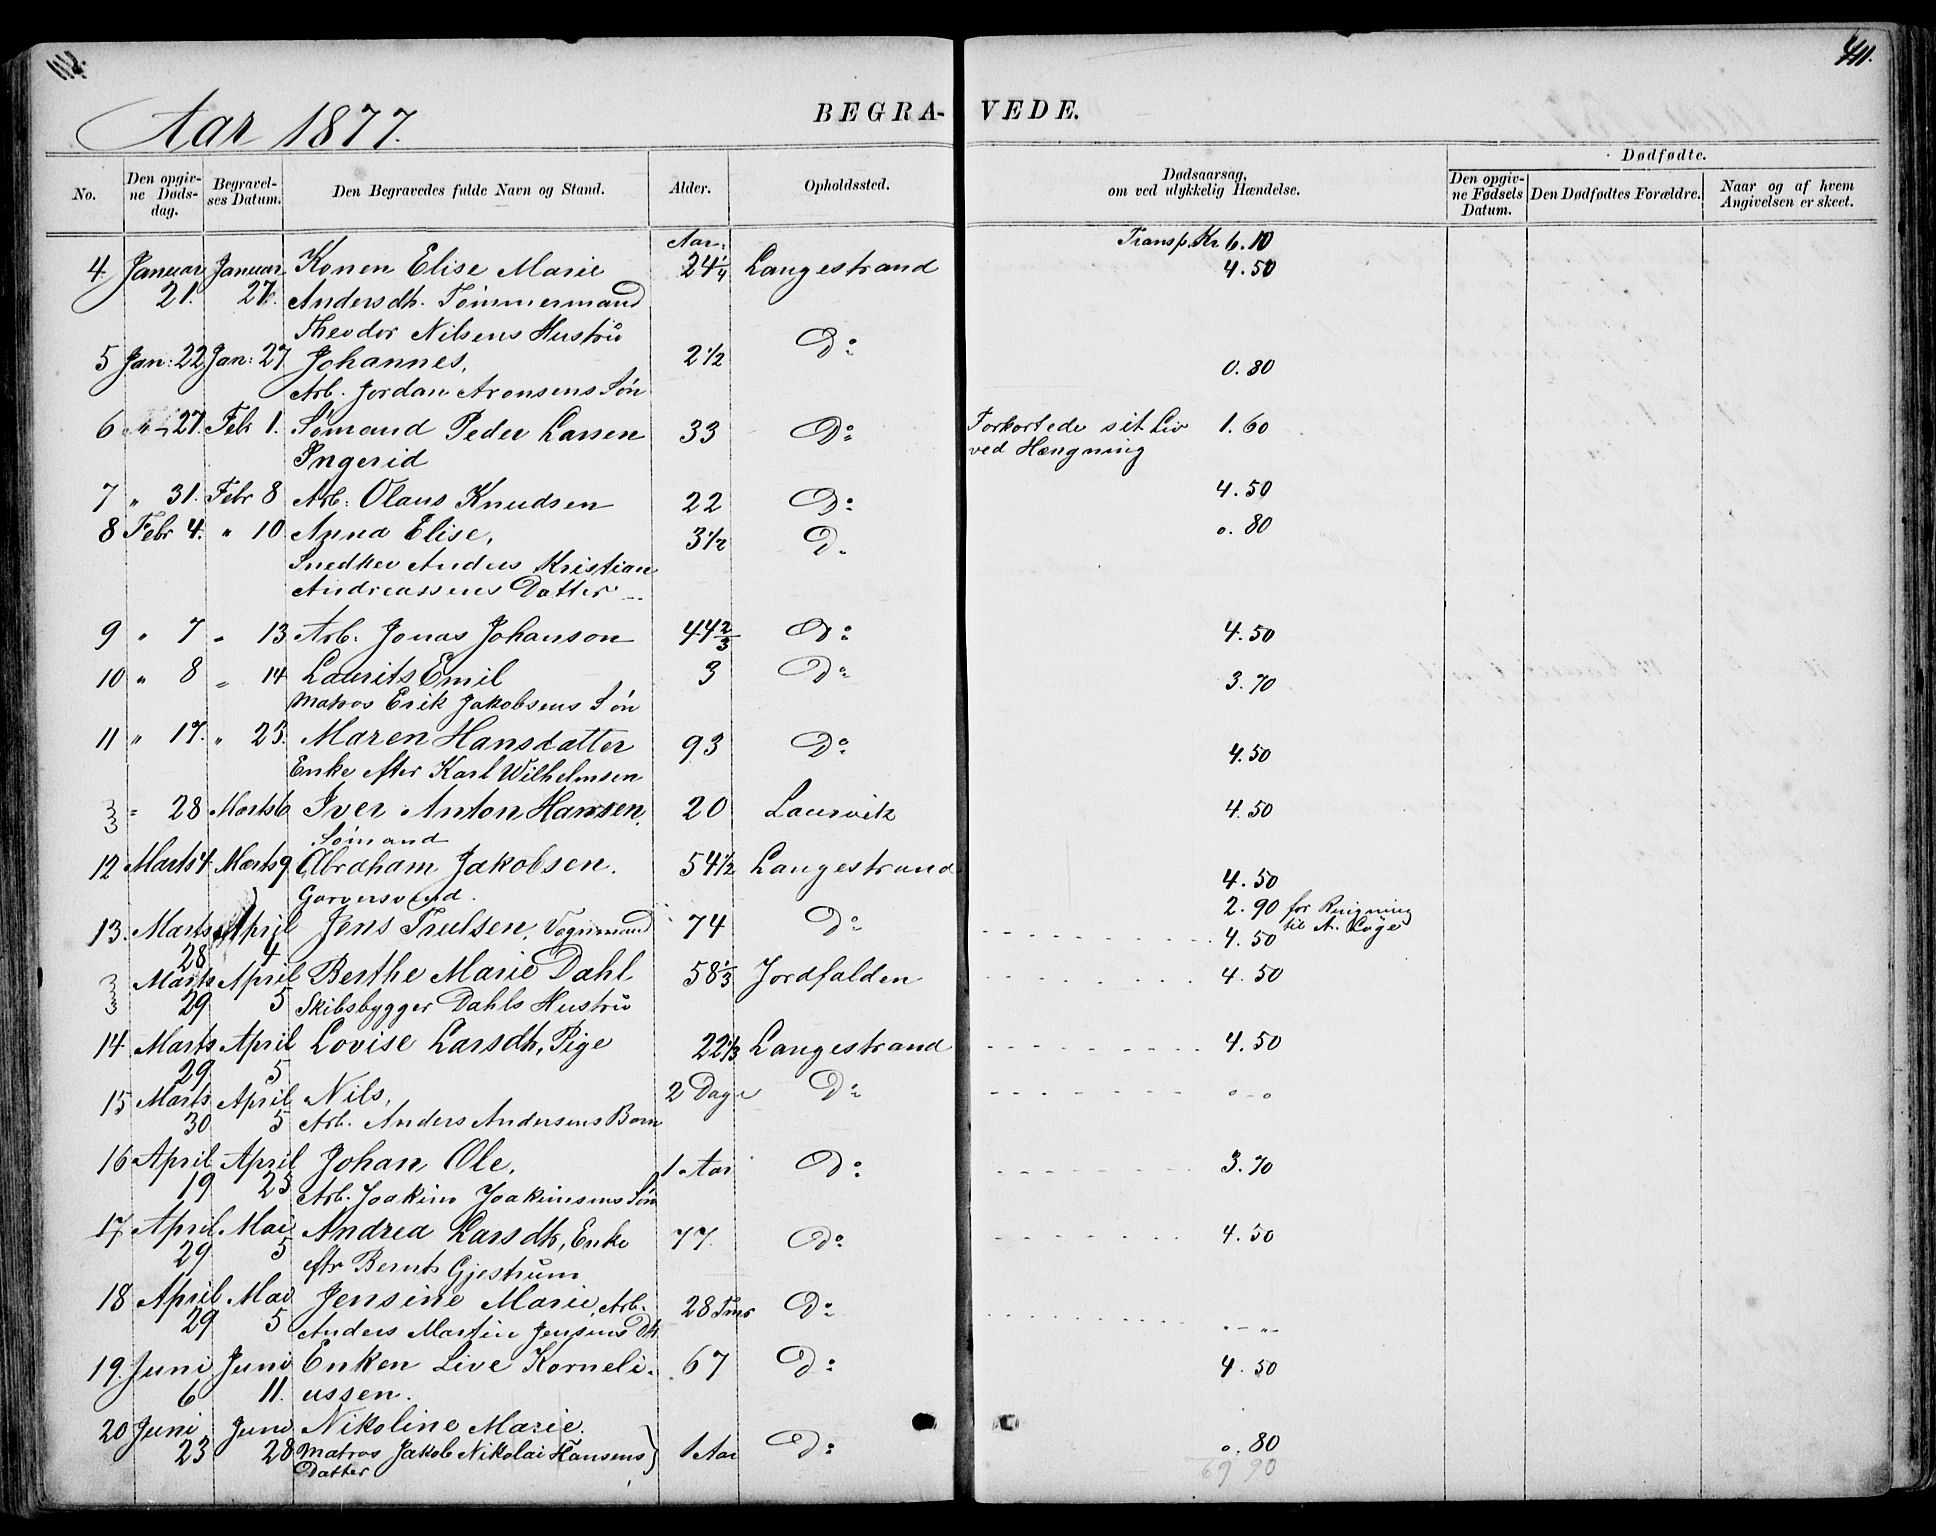 411.
Aar 1877.
BEGRA- VEDE.
No. Den opgivne Dødsdag. Begravelses Datum. Den Begravedes fulde Navn og Stand. Alder. Opholdssted. Dødsaarsag, om ved ulykkelig Hændelse. Dødfødte. Den opgivne Fødsels Datum. Den Dødfødtes Forældre. Naar og af hvem Angivelsen er skeet.
Aar. Transp. Kr 6.10
4. Januar Januar Konen Elise Marie 24 1/4 Langestrand 4.50
21. 27. Andersdtr. Tømmermand
Theodor Nilsens Hustrū
5 Jan: 22 Jan: 27 Johannes, 2 1/2 Do 0.80
Arb. Jordan Aronsens Søn
6 27. Feb 1. Sømand Peder Larsen 33 Do Forkortede sit Liv 1.60
Ingerid ved Hængning
7 " 31. Febr 8 Arb: Olaus Knudsen 22 Do 4.50
8 Febr 4. " 10 Anna Elise, 3 1/2 D. 0.80
Snedker Anders Kristian
Andreassens Datter
9 " 7 " 13 Arb. Jonas Johanson 44 2/3 Do 4.50
10 " 8 " 14 Laurits Emil 3 Do 3.70
Matros Erik Jakobsens Søn
11 " 17. " 23. Maren Hansdatter 93 Do 4.50
Enke efter Karl Wilhelmsen
= 28 Marts 6 Iver Anton Hansen, 20 Laurvik 4.50
Sømand
12 Marts 4 Marts 9 Abraham Jakobsen. 54 1/2 Langestrand 4.50
Garversvend. 2.90 for Ringning
til A. Løge
13. Marts April Jens Trulsen, Vognmand 74 Do 4.50
28 4
Marts April Berthe Marie Dahl 58 1/3 Jordfalden 4.50
29 5 Skibsbygger Dahls Hustrū
14 Marts April Lovise Larsdtr, Pige 22 1/3 Langestrand 4.50
29 5
15 Marts April Nils, 2 Dage Do o-o
30 5 Arb. Anders Andersens Barn
16 April April Johan Ole, 1 Aar Do 3.70
19 25 Arb. Joakim Joakimsens Søn
17 April Mai Andrea Larsdtr, Enke 77 Do 4.50
29 5 eftr Bernt Gjestrūm
18 April Mai Jensine Marie, Arb. 28 Tmr Do "-"-
29 5 Anders Martin Jensens Dtr
19. Juni Juni Enken Live Korneli- 67 Do 4.50
6 11. ussen.
20 Juni Juni Nikoline Marie. 1 Aar Do 0.80
23 28 Matros Jakob Nikolai Hansens
Datter 69 90